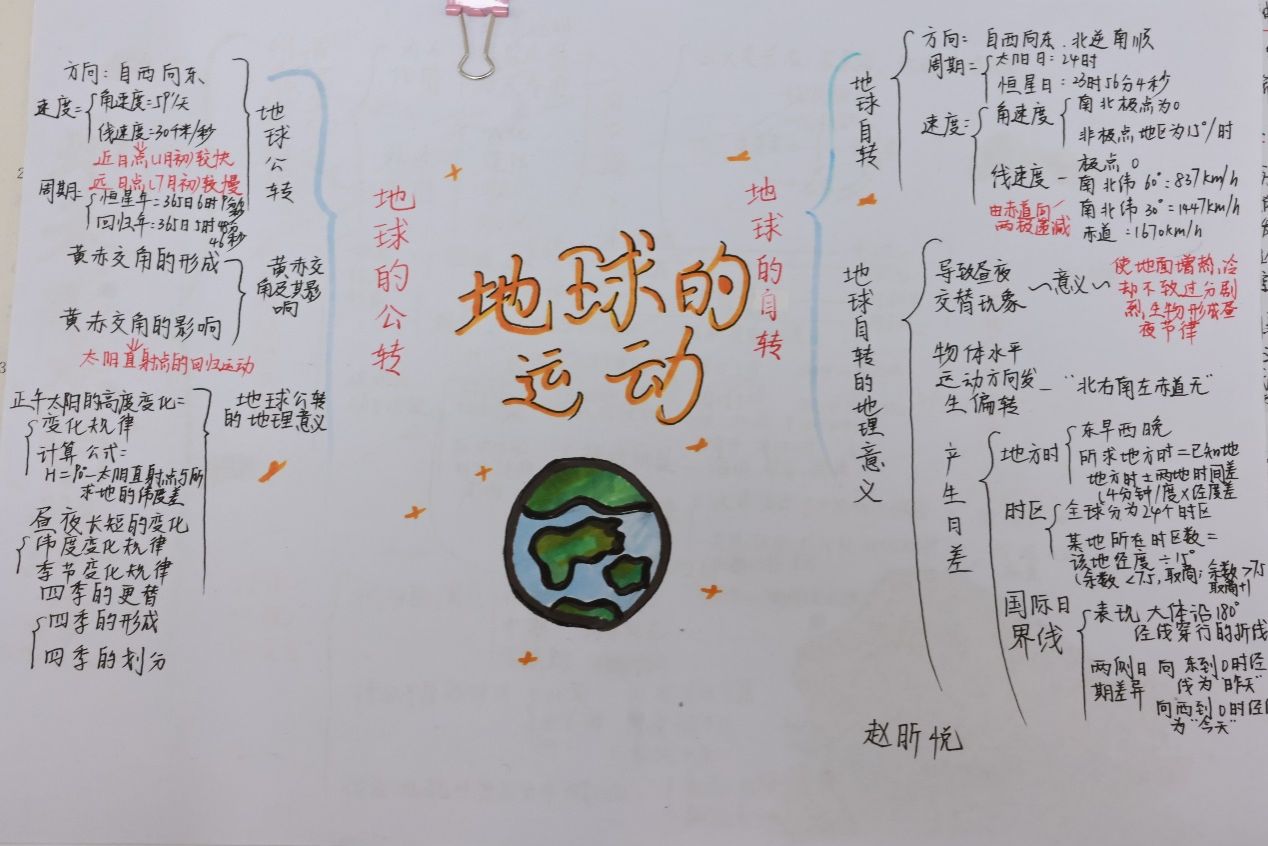 地球的
运动
地球的公转
地球公转
方向：自西向东
速度=
角速度=59'/天
线速度=30千米/秒
近日点(1月初)较快
远日点(7月初)较慢
周期:
恒星年=365日6时9分
回归年=365日5时48分
46秒
黄赤交
角及其影
响
黄赤交角的形成
黄赤交角的影响
太阳直射点的回归运动
地球公转
的地理意义
正午太阳的高度变化=
变化规律
计算公式=
H=90°-太阳直射点与所
求地的纬度差
昼夜长短的变化
纬度变化规律
季节变化规律
四季的更替
四季的形成
四季的划分
地球的自转
地球自转
方向= 自西向东.北逆南顺
周期=
太阳日：24时
恒星日：23时56分4秒
速度=
角速度
南北极点为0
非极点地区为15°/时
线速度-
极点 0
南北纬60°=837km/h
南北纬30°=1447km/h
赤道：1670km/h
由赤道向
两极递减
地球自转的地理意义
导致昼夜
交替现象
意义
使地面增热,冷
却不致过分剧
烈,生物形成昼
夜节律
物体水平
运动方向发
生偏转
"北右南左赤道无"
产生日差
地方时
东早西晚
所求地方时=已知地
地方时±两地时间差
(4分钟/度×经度差
时区
全球分为24个时区
某地所在时区数=
该地经度÷15°
(余数<7.5,取商;余数>7.5
取商+1
国际日
界线
表现 大体沿180°
经线穿行的折线
两侧日
期差异
向东到0时经
线为"昨天"
向西到0时经
为"今天"
赵昕悦